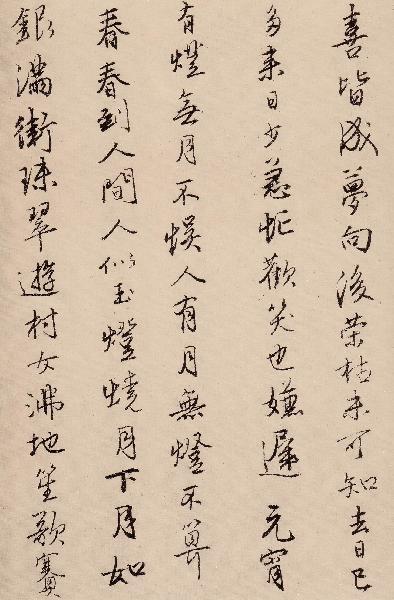 喜皆成夢向後榮枯未可知去日已
多來日少急忙歡笑也嫌遲元宵
有燈無月不娛人有月無燈不算
春春到人間人似玉燈燒月下月如
銀滿街珠翠遊村女沸地笙歌賽